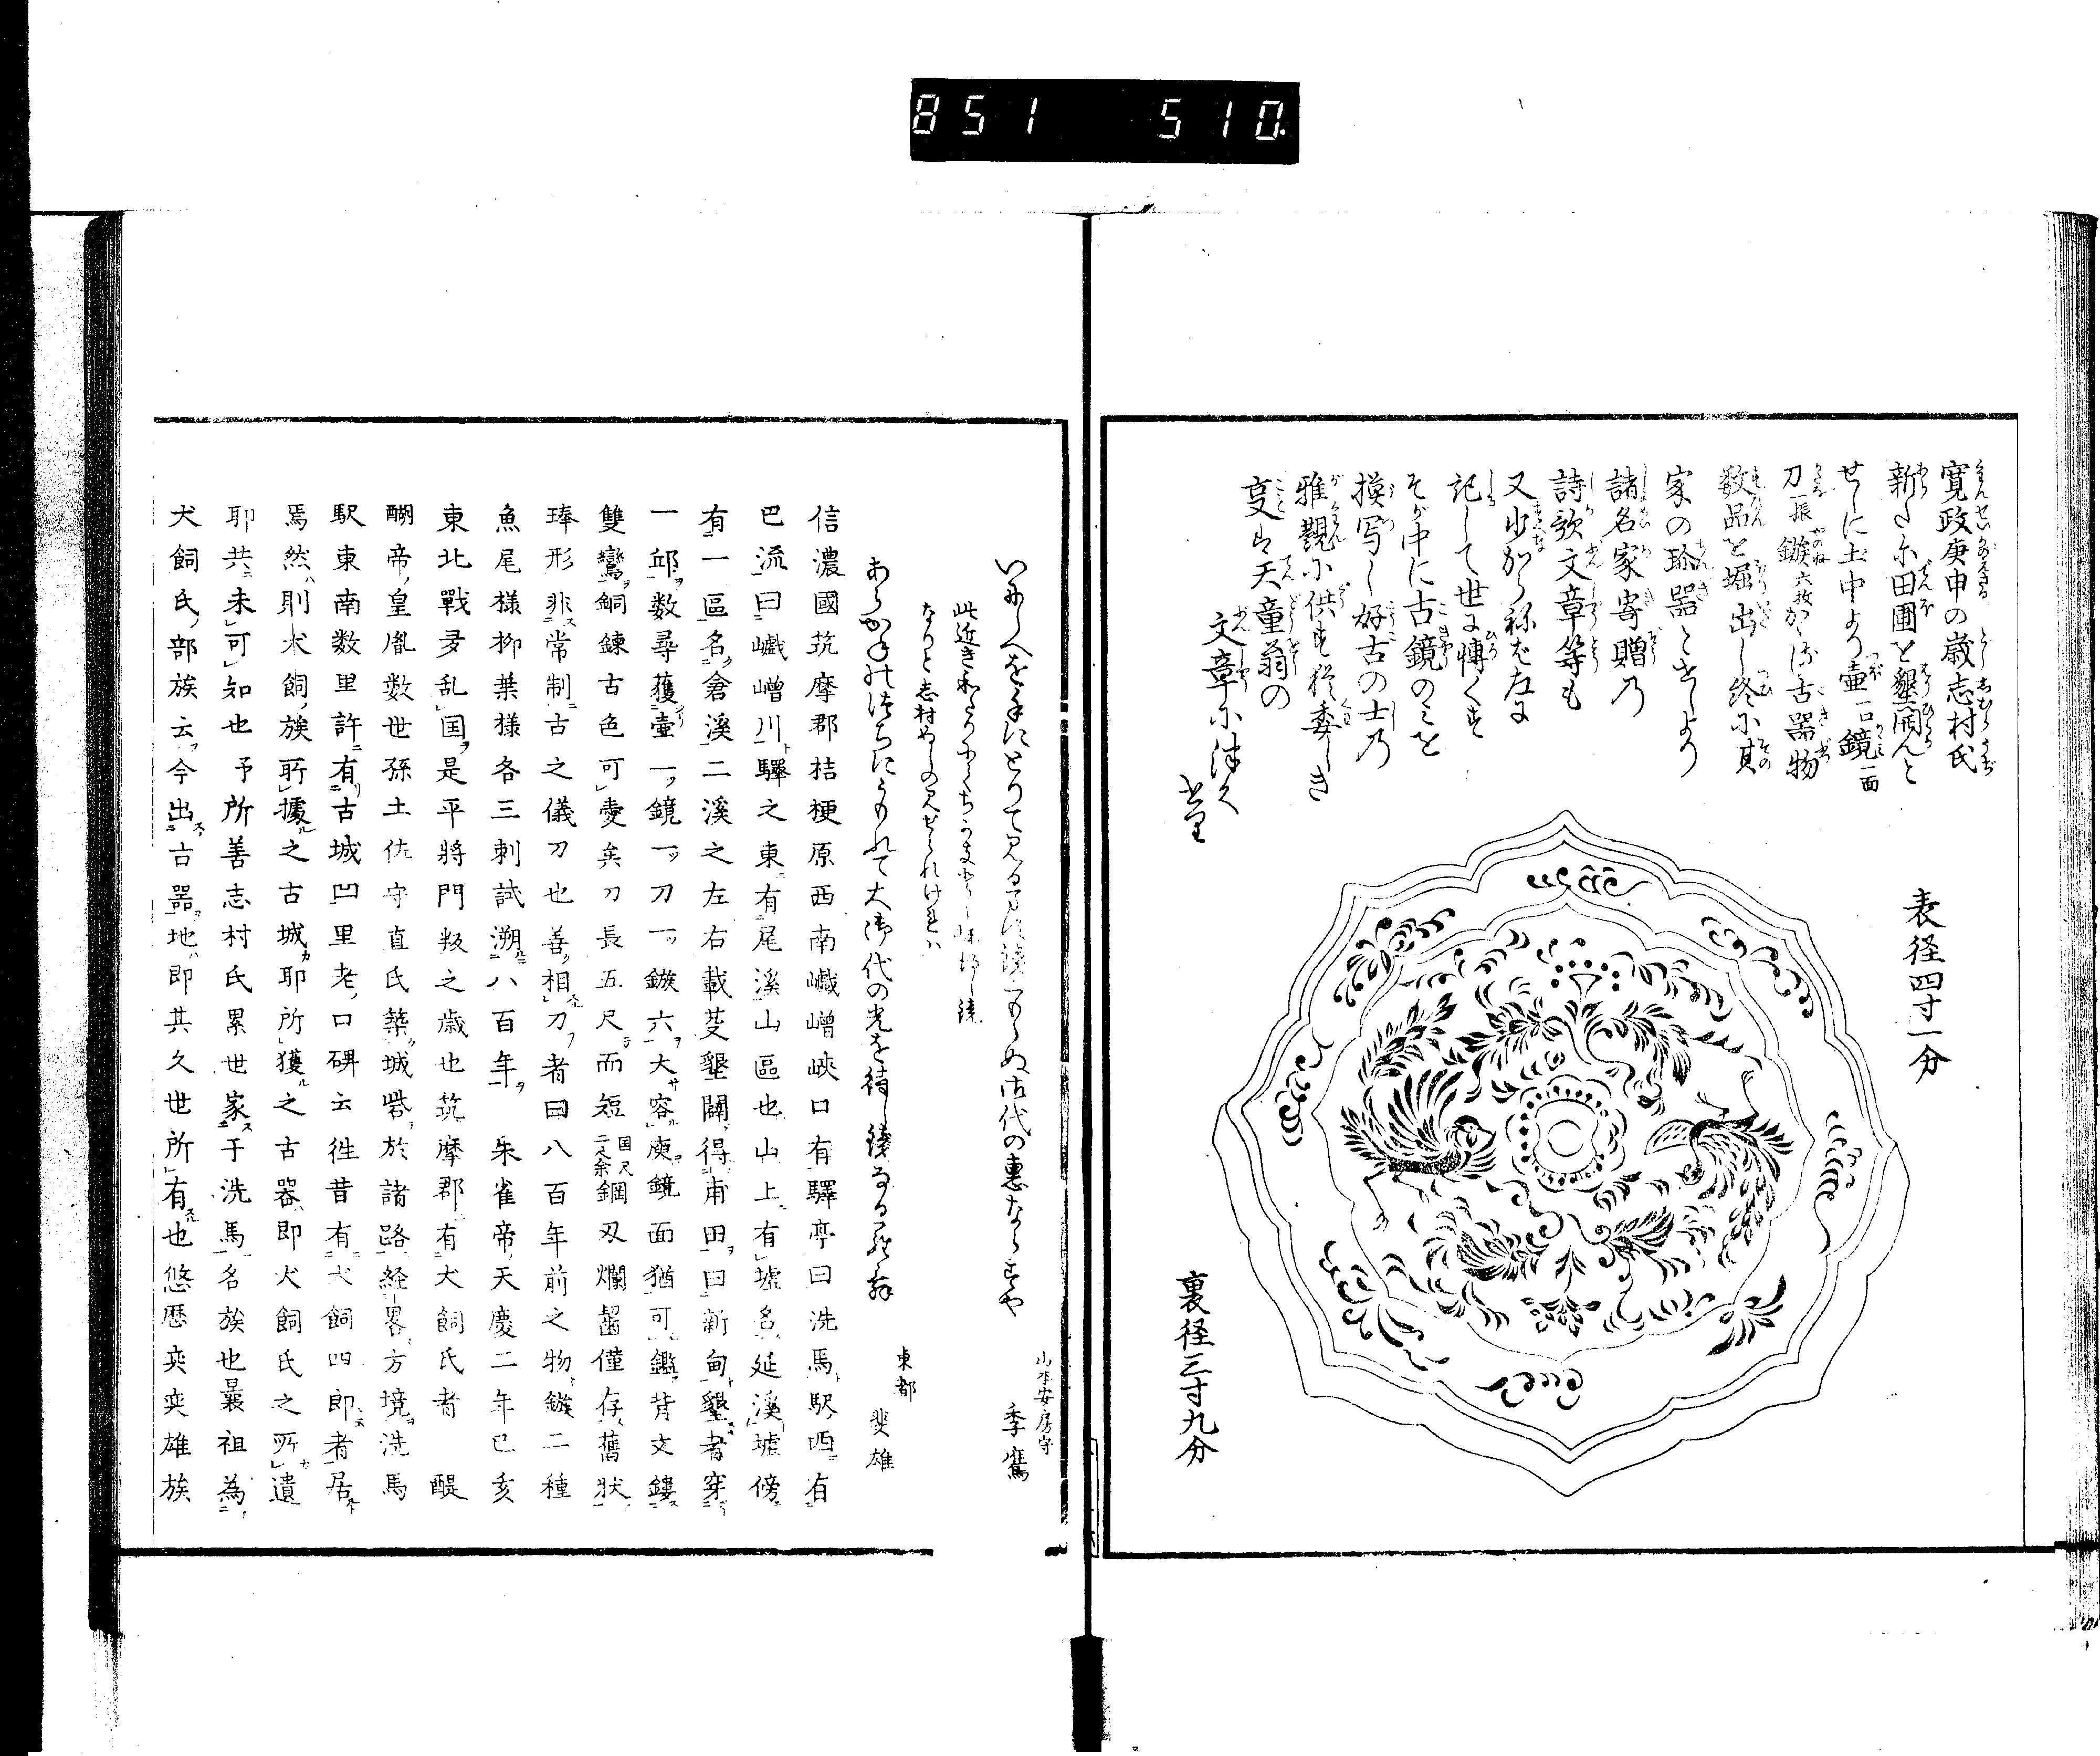 851 510
寛政庚申の歳志村氏
新たに田圃を墾開んと
せしに土中より壷一口鏡一面
刀一振鏃六枚かゝる古器物
数品を堀出し終に其
家の珎器とせしより
諸名家寄贈の
詩歌文章等も
又少からねば左に
記して世に博くす
そが中に古鏡のミを
摸写し好古の士の
雅観に供す猶委しき
事は天童翁の
文章に津久
せり
表径四寸一分
裏径三寸九分
いにしへを手にとりて見るます鏡くもらぬ御代の恵ならすや
山本安房守
季鷹
なりと志村ぬしの見せられけれハ
あらかねの津ちにうもれて大御代の光を待し鏡なるらん
東都 斐雄
信濃國筑摩郡桔梗原西南巇嶒峽口有驛亭曰洗馬駅西有
巴流曰巇嶒川驛之東有尾溪山區也山上有墟名延溪墟傍
有一區名倉溪二溪之左右載芟墾闢得甫田曰新甸墾者穿
一邱数尋獲壷一鏡一刀一鏃六大容庾鏡面猶可鑑背文鏤
雙鸞銅錬古色可愛矣刀長五尺而短国尺二尺余鋼刄爛齧僅存舊狀
琫形非常制古之儀刀也善相刀者曰八百年前之物鏃二種
魚尾様柳葉様各三刺試溯八百年 朱雀帝天慶二年己亥
東北戰多乱国是平將門叛之歳也筑摩郡有犬飼氏者 醍
醐帝皇胤数世孫土佐守直氏築城砦於諸路経畧方境洗馬
駅東南数里許有古城凹里老口碑云徃昔有犬飼四郎者居
焉然則犬飼族所據之古城耶所獲之古器即犬飼氏之所遺
耶共未可知也予所善志村氏累世家于洗馬名族也曩祖為
犬飼氏部族云今出古器地即其久世所有也悠歴奕奕雄族